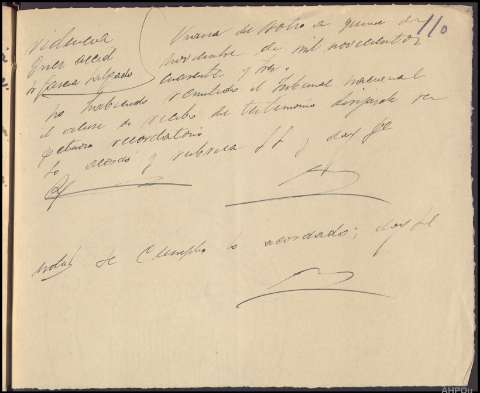 110
Providencia
Juez accid
Sr Garcia Salgado
Viana del Bollo a quince de
noviembre de mil novecientos
cuarenta y tres.
No habiendo remitido el Tribunal nacional
el acuse de recibo de testimonio dirijasele
recordatorio
Lo acordó y rubrica SS y doy fe
Nota/ Se cumple lo acordado; doy fe
AHPOu